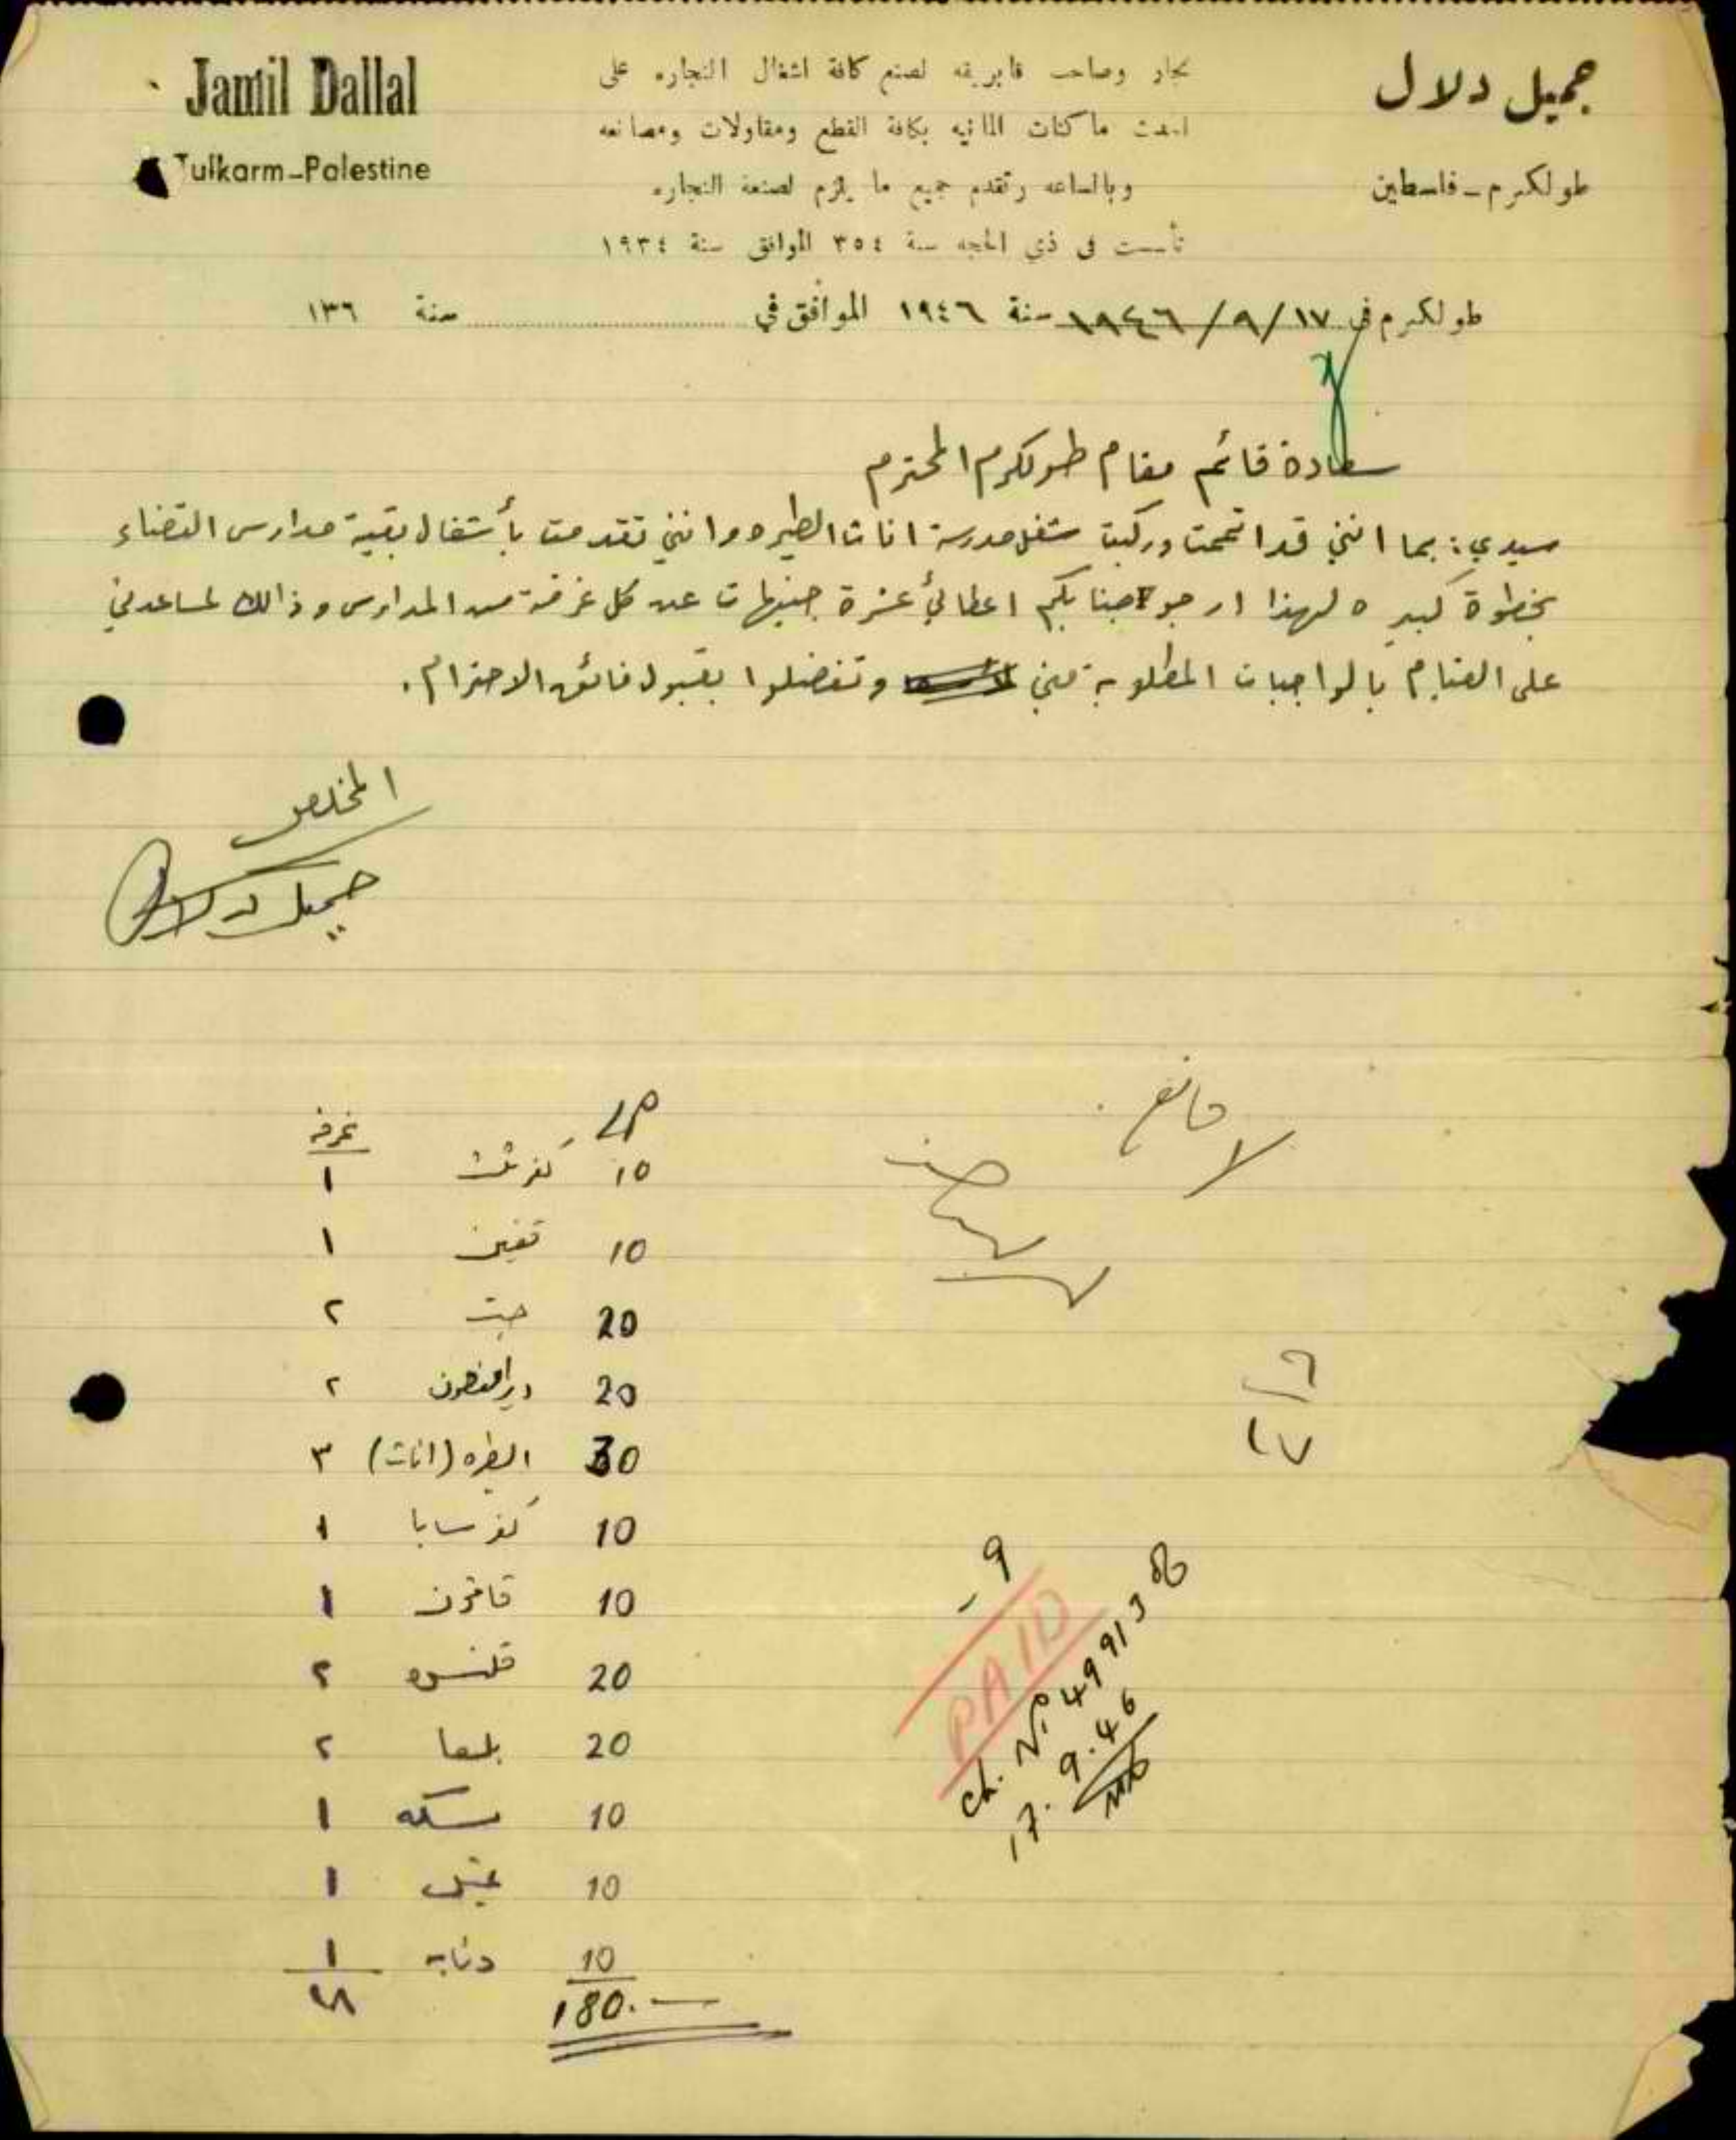 Jamil Dallal
Tulkarm-Palestine
جميل دلال
طولكرم - فلسطين
نجار وصاحب فابريقه لصنع كافة اشغال النجاره على
احدث ماكنات المانيه بكافة القطع ومقاولات ومصانعه
وبالساعه وتقدم جميع ما يلزم لصنعة النجاره
تأسست في ذي الحجه سنة ٣٥٤ الموافق سنة ١٩٣٤
طولكرم في ١٧/٩/١٩٤٦ سنة ١٩٤٦ الموافق في سنة ١٣٦
سعادة قائم مقام طولكرم المحترم
سيدي: بما انني قد اتممت وركبت شغل مدرسة اناث الطيره وانني تقدمت بأشغال بقية مدارس القضاء
بخطوة كبيره لهذا ارجو جنابكم اعطائي عشرة جنيهات عن كل غرفة من المدارس وذالك لمساعدتي
على القيام بالواجبات المطلوبة مني وتفضلوا بقبول فائق الاحترام.
المخلص
جميل دلال
لا مانع
٦
١٧
LP غرفه
10 كفر ثلث ١
10 قفين ١
20 جت ٢
20 دير الغصون ٢
30 الطيره (اناث) ٣
10 كفر سابا ١
10 قاقون ١
20 قلنسوه ٢
20 بلعا ٢
10 مسكه ١
10 عتيل ١
10 دنابه ١
180.— ١٨
9
PAID
ch. No 499138
17.9.46